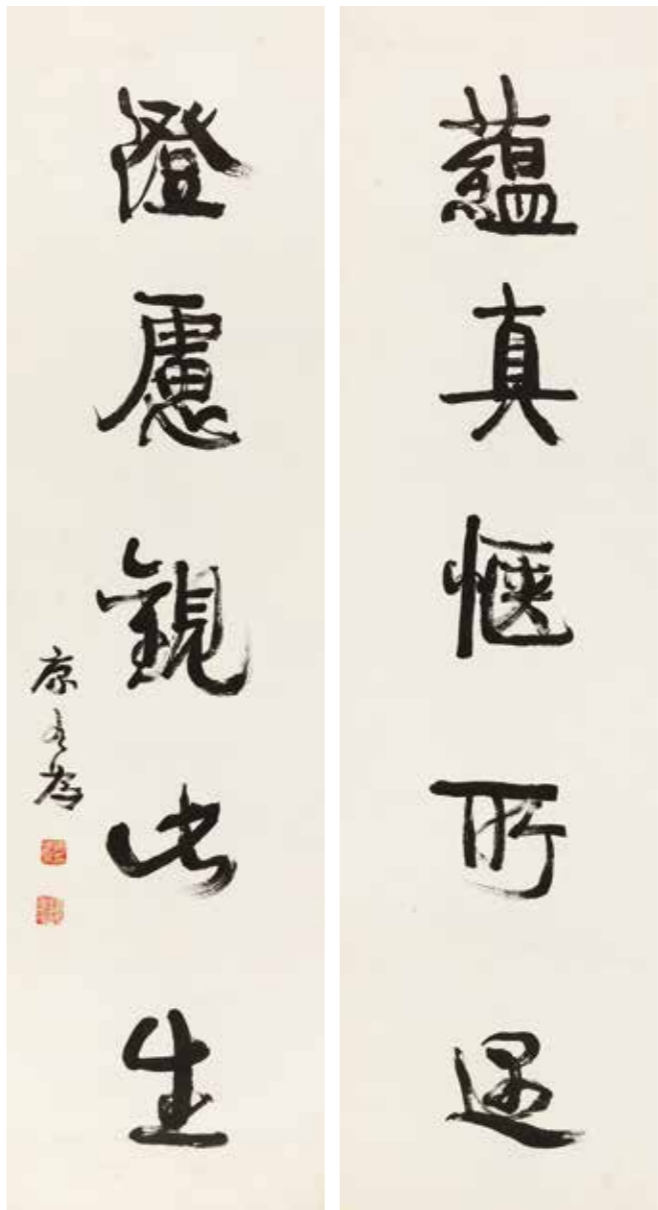 蘊真愜所遇
澄慮觀此生
康有為